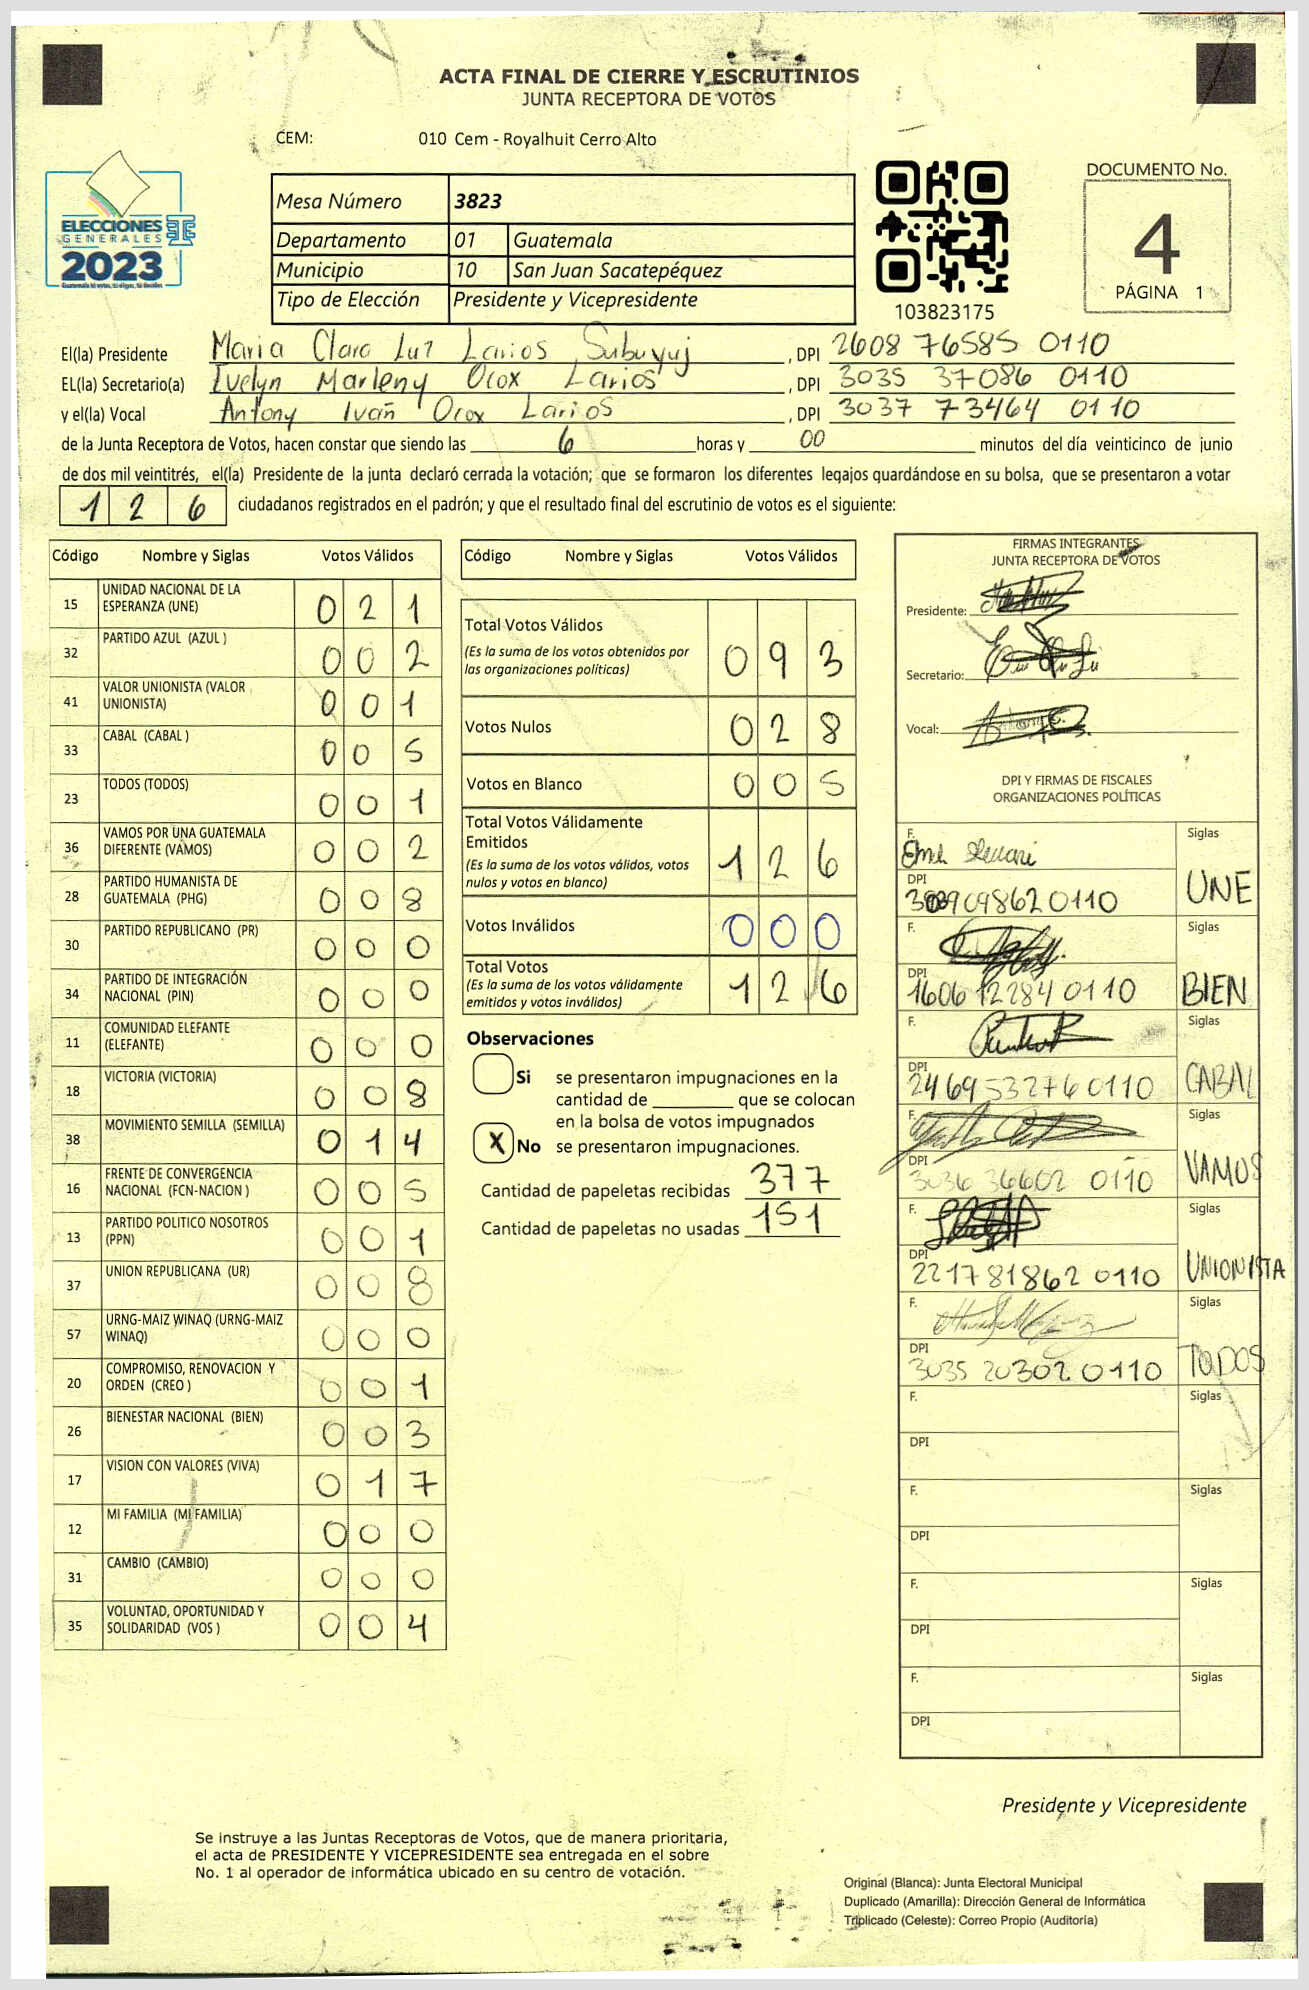 ACTA FINAL DE CIERRE Y ESCRUTINIOS
JUNTA RECEPTORA DE VOTOS
CEM: 010 Cem - Royalhuit Cerro Alto
ELECCIONES
GENERALES
2023
Mesa Número 3823
Departamento 01 Guatemala
Municipio 10 San Juan Sacatepéquez
Tipo de Elección Presidente y Vicepresidente
103823175
DOCUMENTO No.
4
PÁGINA 1
El(la) Presidente Maria Clara Luz Larios Subuyuj, DPI 2608 76585 0110
EL(la) Secretario(a) Evelyn Marleny Ocox Larios, DPI 3035 37086 0110
y el(la) Vocal Antony Ivañ Ocox Larios, DPI 3037 73464 0110
de la Junta Receptora de Votos, hacen constar que siendo las 6 horas y 00 minutos del día veinticinco de junio
de dos mil veintitrés, el(la) Presidente de la junta declaró cerrada la votación; que se formaron los diferentes legajos guardándose en su bolsa, que se presentaron a votar
126 ciudadanos registrados en el padrón; y que el resultado final del escrutinio de votos es el siguiente:
Código Nombre y Siglas Votos Válidos
15 UNIDAD NACIONAL DE LA ESPERANZA (UNE) 021
32 PARTIDO AZUL (AZUL ) 002
41 VALOR UNIONISTA (VALOR UNIONISTA) 001
33 CABAL (CABAL ) 005
23 TODOS (TODOS) 001
36 VAMOS POR UNA GUATEMALA DIFERENTE (VAMOS) 002
28 PARTIDO HUMANISTA DE GUATEMALA (PHG) 008
30 PARTIDO REPUBLICANO (PR) 000
34 PARTIDO DE INTEGRACIÓN NACIONAL (PIN) 000
11 COMUNIDAD ELEFANTE (ELEFANTE) 000
18 VICTORIA (VICTORIA) 008
38 MOVIMIENTO SEMILLA (SEMILLA) 014
16 FRENTE DE CONVERGENCIA NACIONAL (FCN-NACION ) 005
13 PARTIDO POLITICO NOSOTROS (PPN) 001
37 UNION REPUBLICANA (UR) 008
57 URNG-MAIZ WINAQ (URNG-MAIZ WINAQ) 000
20 COMPROMISO, RENOVACION Y ORDEN (CREO ) 001
26 BIENESTAR NACIONAL (BIEN) 003
17 VISION CON VALORES (VIVA) 017
12 MI FAMILIA (MI FAMILIA) 000
31 CAMBIO (CAMBIO) 000
35 VOLUNTAD, OPORTUNIDAD Y SOLIDARIDAD (VOS ) 004
Código Nombre y Siglas Votos Válidos
Total Votos Válidos 093
(Es la suma de los votos obtenidos por
las organizaciones políticas)
Votos Nulos 028
Votos en Blanco 005
Total Votos Válidamente
Emitidos 126
(Es la suma de los votos válidos, votos
nulos y votos en blanco)
Votos Inválidos 000
Total Votos 126
(Es la suma de los votos válidamente
emitidos y votos inválidos)
Observaciones
Si se presentaron impugnaciones en la
cantidad de ________ que se colocan
en la bolsa de votos impugnados
X No se presentaron impugnaciones.
Cantidad de papeletas recibidas 377
Cantidad de papeletas no usadas 151
FIRMAS INTEGRANTES
JUNTA RECEPTORA DE VOTOS
Presidente:
Secretario:
Vocal:
DPI Y FIRMAS DE FISCALES
ORGANIZACIONES POLÍTICAS
F. Siglas
DPI UNE
F. Siglas
DPI 1606 12284 0110 BIEN
F. Siglas
DPI 2469 53276 0110 CABAL
F. Siglas
DPI 3036 36602 0110 VAMOS
F. Siglas
DPI 2217 81862 0110 UNIONISTA
F. Siglas
DPI 3035 20302 0110 TODOS
F. Siglas
DPI
F. Siglas
DPI
F. Siglas
DPI
F. Siglas
DPI
Presidente y Vicepresidente
Se instruye a las Juntas Receptoras de Votos, que de manera prioritaria,
el acta de PRESIDENTE Y VICEPRESIDENTE sea entregada en el sobre
No. 1 al operador de informática ubicado en su centro de votación.
Original (Blanca): Junta Electoral Municipal
Duplicado (Amarilla): Dirección General de Informática
Triplicado (Celeste): Correo Propio (Auditoría)